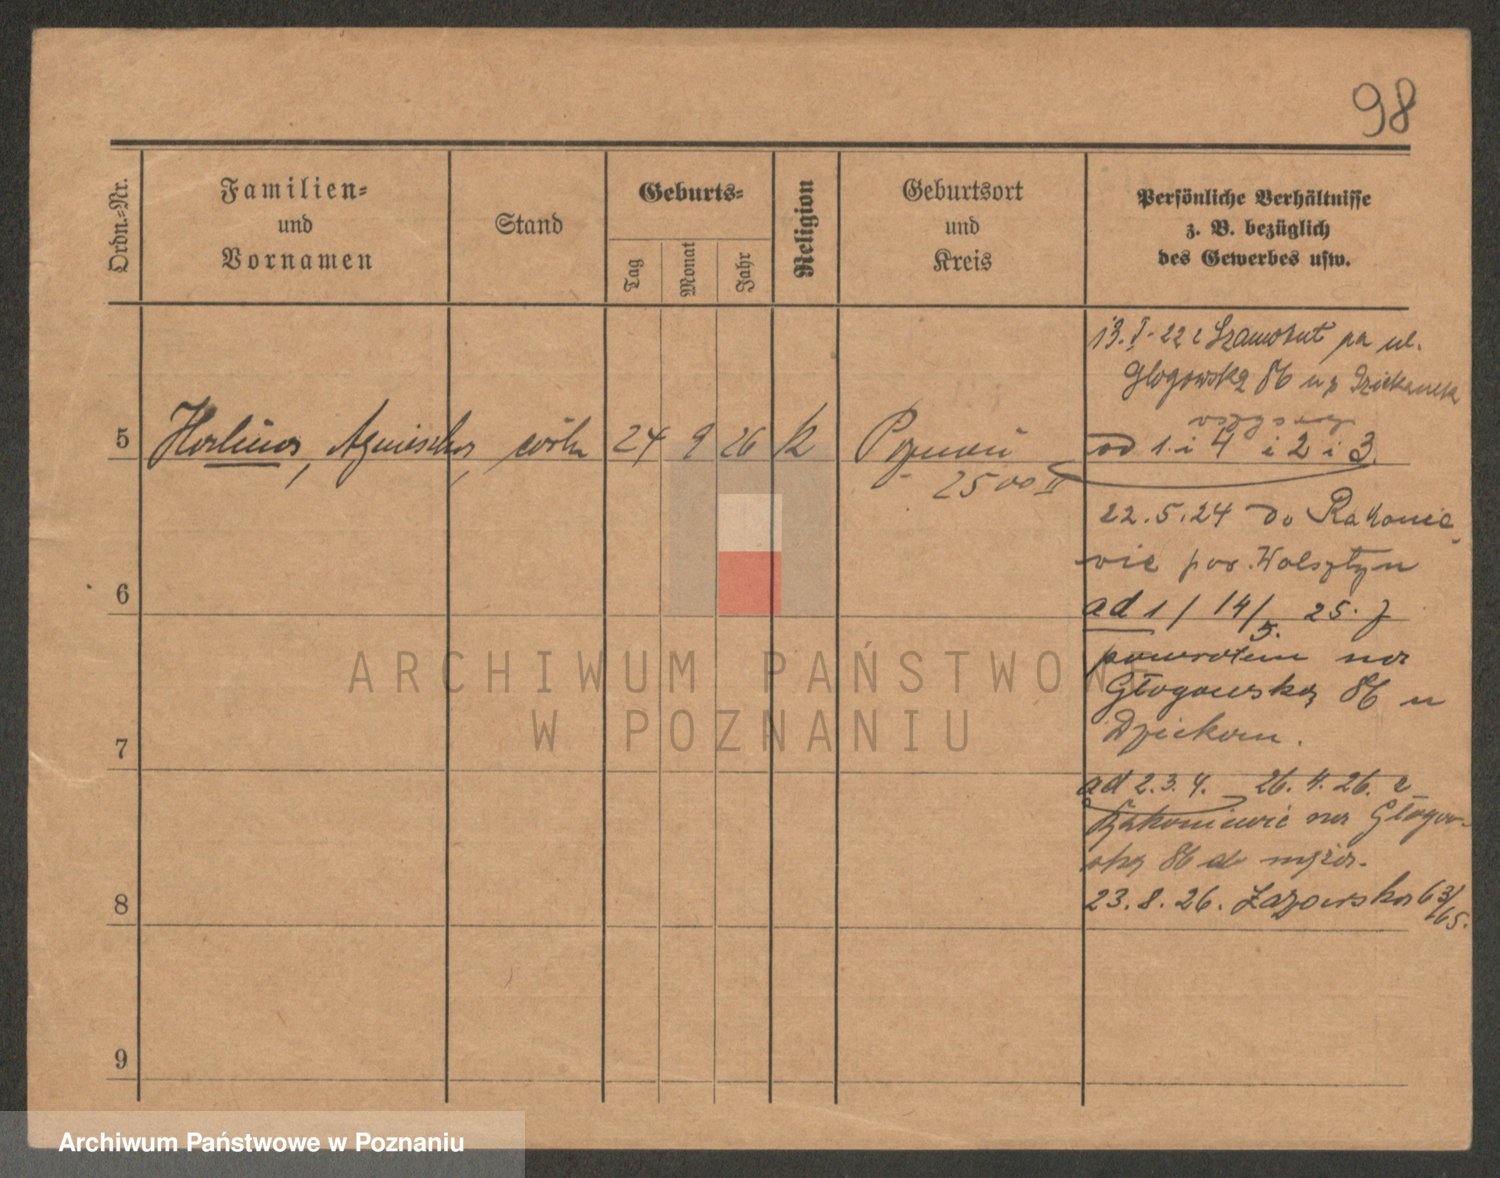 98
Ordn.=Nr.
Familien=
und
Vornamen
Stand
Geburts=
Tag
Monat
Jahr
Religion
Geburtsort
und
Kreis
Persönliche Verhältnisse
z. B. bezüglich
des Gewerbes usw.
13. I. 22 z Szamotuł na ul.
Głogowską 86 u p
5 Agnieszka, córka 24 9 26 K Poznań
ad 1 i 4 i 2 i 3.
2500 II
22.5.24 do Rakonie-
wic pow. Wolsztyn
6
ad 1/ 14/5. 25. z
powrotem na
Głogowską 86 u
7
ad 2.3.4. 26.4.26. z
Rakoniewic na Głogow-
ską 86 do męża.
8
23.8.26. Łazowska 63/65.
9
ARCHIWUM PAŃSTWOWE
W POZNANIU
Archiwum Państwowe w Poznaniu